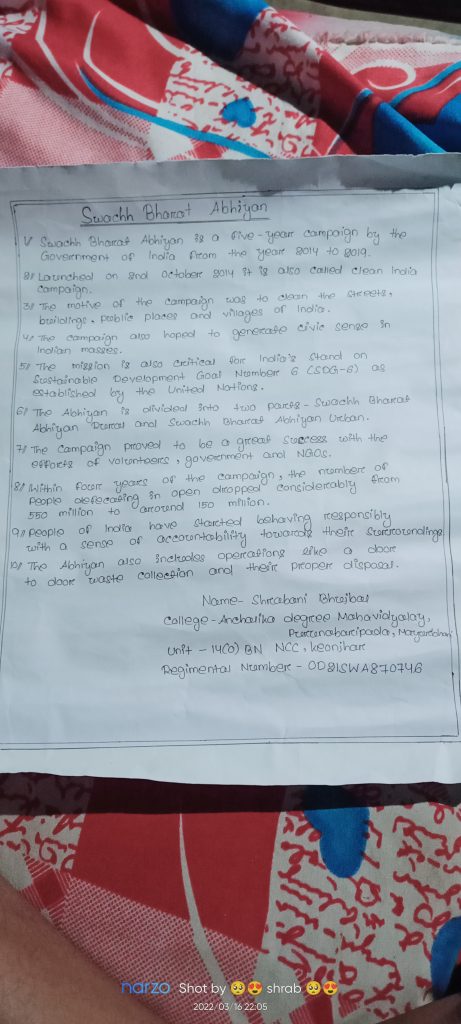 Swachh Bharat Abhiyan
1) Swachh Bharat Abhiyan is a five-year campaign by the
Government of India from the year 2014 to 2019.
2) Launched on 2nd October 2014 it is also called clean India
campaign.
3) The motive of the campaign was to clean the streets,
buildings, public places and villages of India.
4) The campaign also hoped to generate civic sense in
Indian masses.
5) The mission is also critical for India's stand on
Sustainable Development Goal Number 6 (SDG-6) as
established by the United Nations.
6) The Abhiyan is divided into two parts - Swachh Bharat
Abhiyan Rural and Swachh Bharat Abhiyan Urban.
7) The Campaign proved to be a great success with the
efforts of volunteers, government and NGOs.
8) Within four years of the campaign, the number of
People defecating in open dropped considerably from
550 million to around 150 million.
9) People of India have started behaving responsibly
with a sense of accountability towards their surroundings.
10) The Abhiyan also includes operations like a door
to door waste collection and their proper disposal.
Name- Shrabani Bhoibar
College - Anchalika degree Mahavidyalay,
Unit - 14(O) BN NCC, Keonjhar
Regimental Number - OD21SWA870746
narzo Shot by 🥺😍 shrab 🥺😍
2022/03/16 22:05